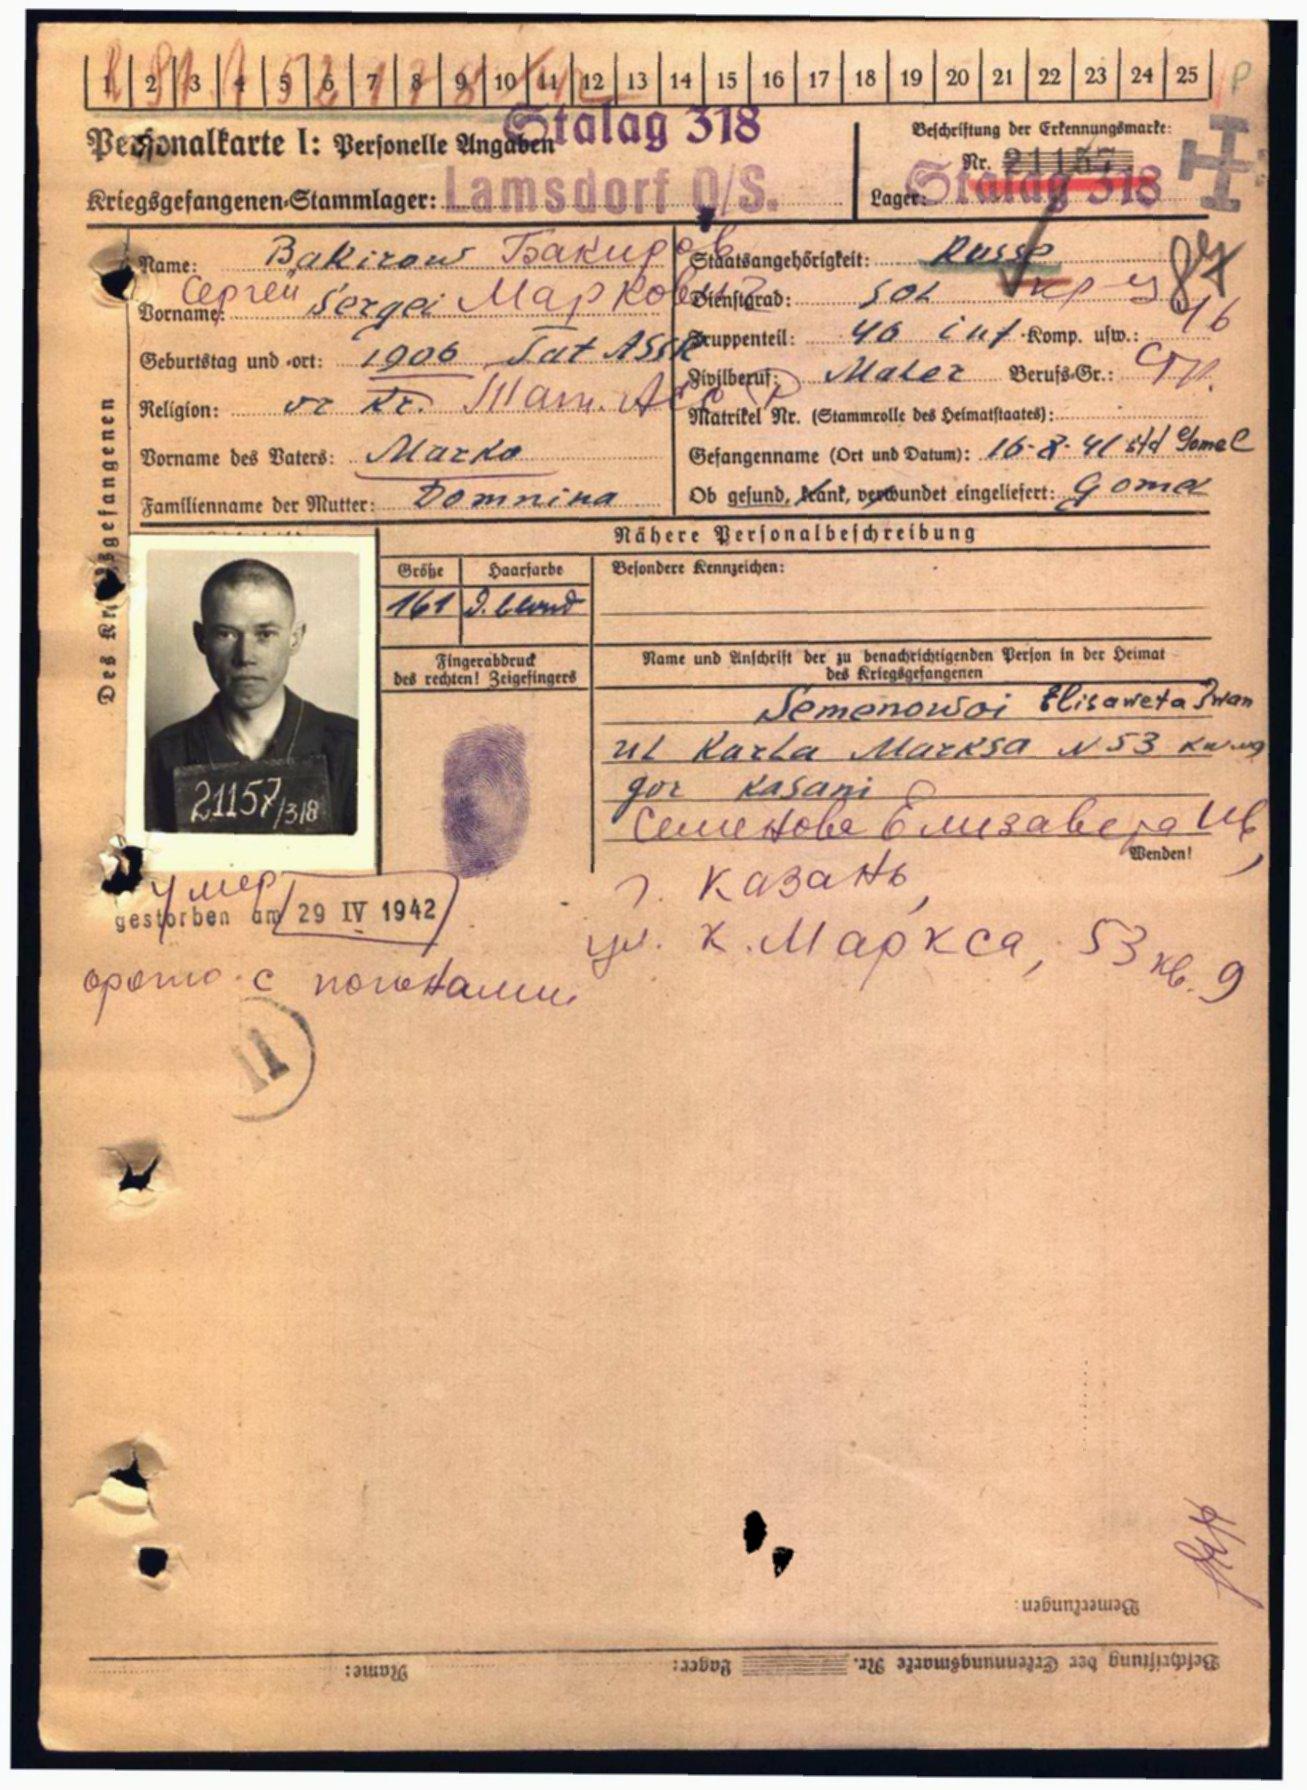 1 2 3 4 5 6 7 8 9 10 11 12 13 14 15 16 17 18 19 20 21 22 23 24 25
Personalkarte I: Personelle Angaben
Stalag 318
Beschriftung der Erkennungsmarke:
Nr. 21157
Kriegsgefangenen-Stammlager: Lamsdorf O/S.
Lager: Stalag 318
Des Kriegsgefangenen
Name: Bakirow Бакиров
Staatsangehörigkeit: Russe
87
Сергей
Vorname: Sergei Маркович
Dienstgrad: Sol
Geburtstag und -ort: 1906 Tat ASSR
Truppenteil: 46 inf Komp. usw.: 46
Zivilberuf: Maler Berufs-Gr.:
Religion: or Kr. Тат. АССР
Matrikel Nr. (Stammrolle des Heimatstaates):
Vorname des Vaters: Marko
Gefangenname (Ort und Datum): 16-8-41 Gomel
Familienname der Mutter: Domnina
Ob gesund, krank, verwundet eingeliefert: Gomel
Nähere Personalbeschreibung
Größe Haarfarbe Besondere Kennzeichen:
161 d. blond
Fingerabdruck
des rechten! Zeigefingers
Name und Anschrift der zu benachrichtigenden Person in der Heimat
des Kriegsgefangenen
Semenowoi Elisaweta Iwan
ul Karla Marksa N 53 kw. 9
gor Kasani
21157/318
Семенова Елизавета Ив,
Wenden!
г. Казань,
умер
gestorben am 29 IV 1942
ул. К. Маркса, 53 кв. 9
фото с погонами
II
Bemerkungen:
Beschriftung der Erkennungsmarke Nr. Lager: Name: